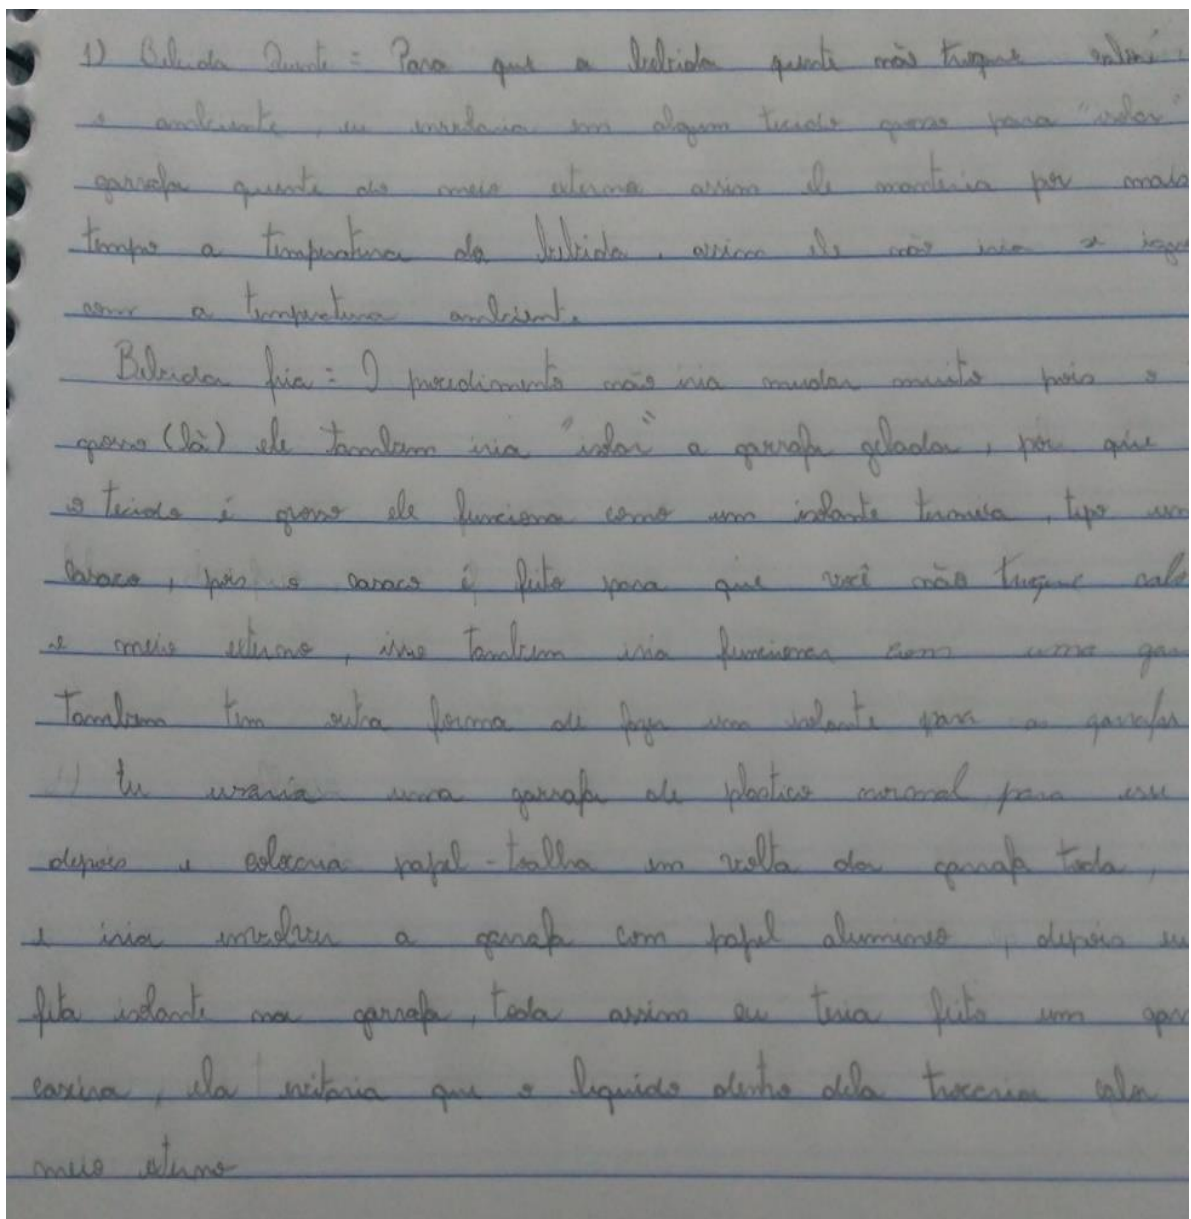 1) Bebida Quente = Para que a bebida quente não troque
e ambiente, eu enrolaria em algum tecido grosso para "isolar"
garrafa quente do meio externo assim ele manteria por mais
tempo a temperatura da bebida, assim ele não iria se
com a temperatura ambient.
Bebida fria = O procedimento não iria mudar muito pois o
grosso (lã) ele tambem iria "isolar" a garrafa gelada, por que
o tecido é grosso ele funciona como um isolante termico, tipo um
casaco, pois o casaco é feito para que você não troque calo
e meio externo, isso tambem iria funcionar com uma gar
Tambem tem outra forma de fazer um isolante para a garrafa
Eu usaria uma garrafa de plastico normal para
depois e colocava papel-toalha em volta da garrafa toda,
e iria envolver a garrafa com papel aluminio, depois eu
fita isolante na garrafa, toda assim eu teria feito um garr
caseira, ela evitaria que o liquido dentro dela trocaria calor
meio externo